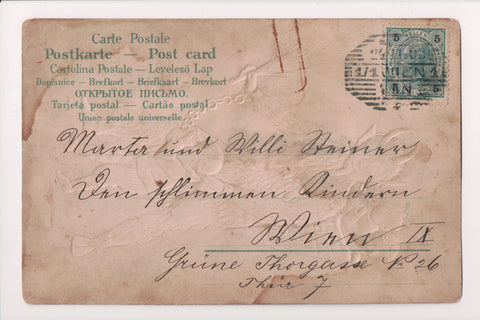 Carte Postale
Postkarte — Post card
Cartolina Postale — Levelező Lap
Dopisnice — Brefkort — Briefkaart — Brevkort
ОТКРЫТОЕ ПИСЬМО.
Tarjeta postal — Cartão postal
Union postale universelle.
5 5
1/1 WIEN 1
5 5
Marta und Willi Steiner
Den schlimmen Kindern
Wien IX
Grüne Thorgasse No 26
Thür 7